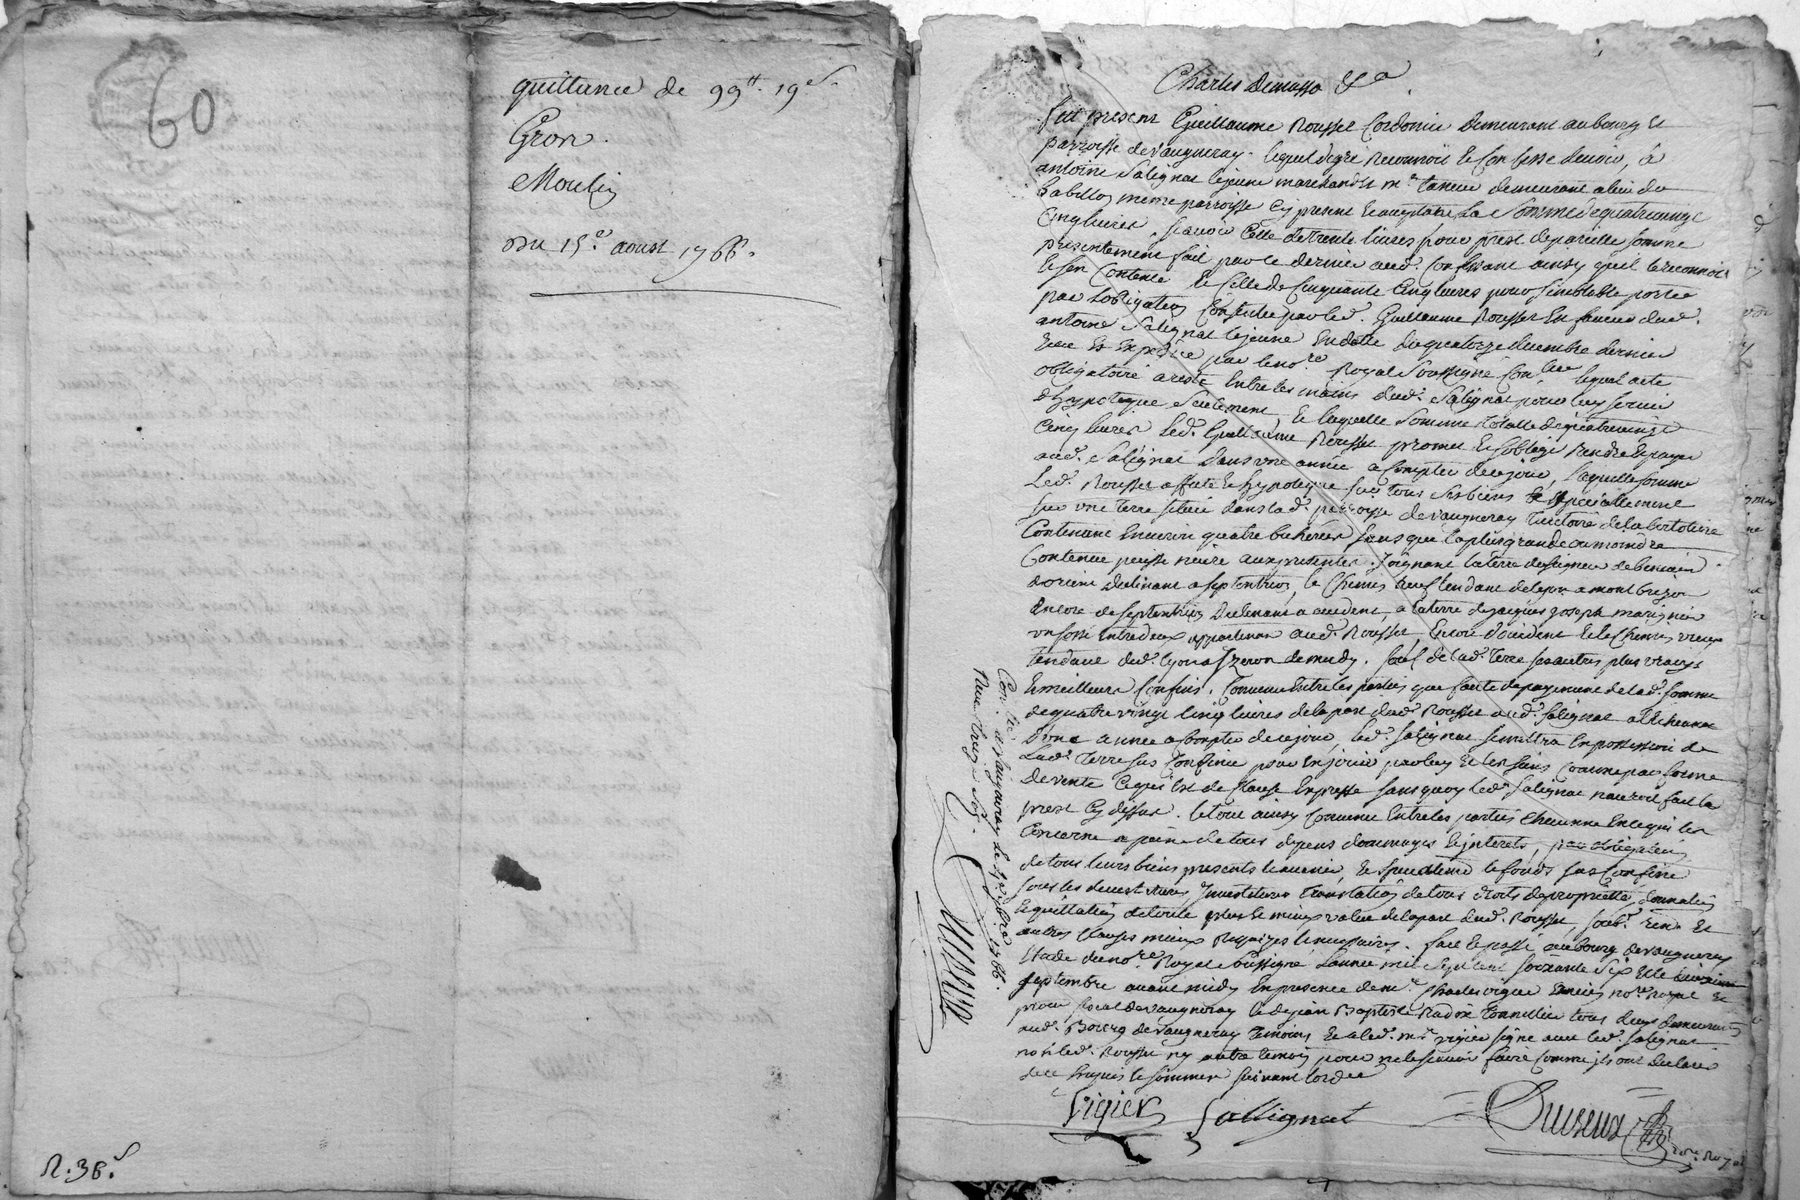 60
quittance de 99tt. 19s.
Gron.
Moulin
Du 15e. aoust 1766.
R. 36s
Charles Demasso &a.
fut present Guillaume Rousset Cordonnier demeurant au bourg et
parroisse de Vaugneray. lequel de gré reconnoit et Confesse devoir, à
antoine Salignat lejeune marchand et me. taneur demeurant a lieu du
même parroisse cy present et acceptant La Somme de quatrevingt
Cinq livres, scavoir Celle de trente livres pour prest de pareille somme
presentement fait par le dernier aud. Confessant ainsy qu'il le reconnoit
et s'en Contente et Celle de Cinquante Cinq livres pour semblable portée
par obligation Consentie par led. Guillaume Rousset en faveur dud.
antoine Salignat lejeune en datte du quatorze decembre dernier
receu et expedié par le nore. Royal Soussigné lequel acte
obligatoire a resté entre les mains dud. Salignat pour luy servir
d'hypoteque Seulement, et laquelle Somme totalle de quatrevingt
Cinq livres led. Guillaume Rousset promet et s'oblige rendre et payer
aud. Salignat dans une année a Compter de ce jour, laquelle somme
Led. Rousset affecte et hypoteque sur tous ses biens et specialement
sur une terre situé dans lad. parroisse de Vaugneray territoire de
Contenant environ quatre bicherées sans que la plus grande ou moindre
Contenue puisse nuire aux presentes. Joignant la terre du seigneur de
d'orient declinant a septentrion, le Chemin tendant de Lyon a montbrison
encore de septentrion declinant a occident, a la terre de Jacques Joseph
un fossé entre deux appartenant aud. Rousset, encore d'occident et le Chemin vieux
tendant dud. Lyon a de midy. sauf de lad. terre ses autres plus vrays
et meilleurs Confins. Convenu entre les parties que faute de payement de lad. somme
de quatre vingt Cinq livres de la part dud. Rousset aud. Salignat a l'echeance
d'une année a Compter de ce jour, led. Salignat se mettra en possession de
Lad. terre sus Confinée pour en jouir par luy et les siens Comme par forme
de vente Ce qui est de Clause expresse sans quoy led. Salignat n'auroit fait le
prest Cy dessus. le tout ainsy Convenu entre les parties Chacunne en ce qui les
Concerne a peine de tous depens dommages et interets, par obligation
de tous leurs biens presents et avenir, et specialement le fonds sus Confiné
sous les devestitures, Investitures translation de tous droits de proprieté, donnation
et quittation de toute plus et moins value de la part dud. Rousset,
autres Clauses mieux requises et necessaires. fait et passé au bourg de Vaugneray
Etude du nore. Royal Soussigné l'année mil sept cent soixante six et le
septembre avant midy en presence de me. Charles Vigier ancien nore. Royal et
procr. fiscal de Vaugneray et de jean Baptiste Radix tonnellier tous deux demeurants
aud. Bourg de Vaugneray temoins et a led. me. Vigier signé avec led. Salignat
non led. Rousset ny autre temoin pour ne le scavoir faire Comme ils ont declaré
de ce enquis et sommés suivant l'ordce
Vigier Sallignat Duiseux
nore. Royal
Conlé. a Vaugneray le 7bre. 1766.
Reçu treize sols.